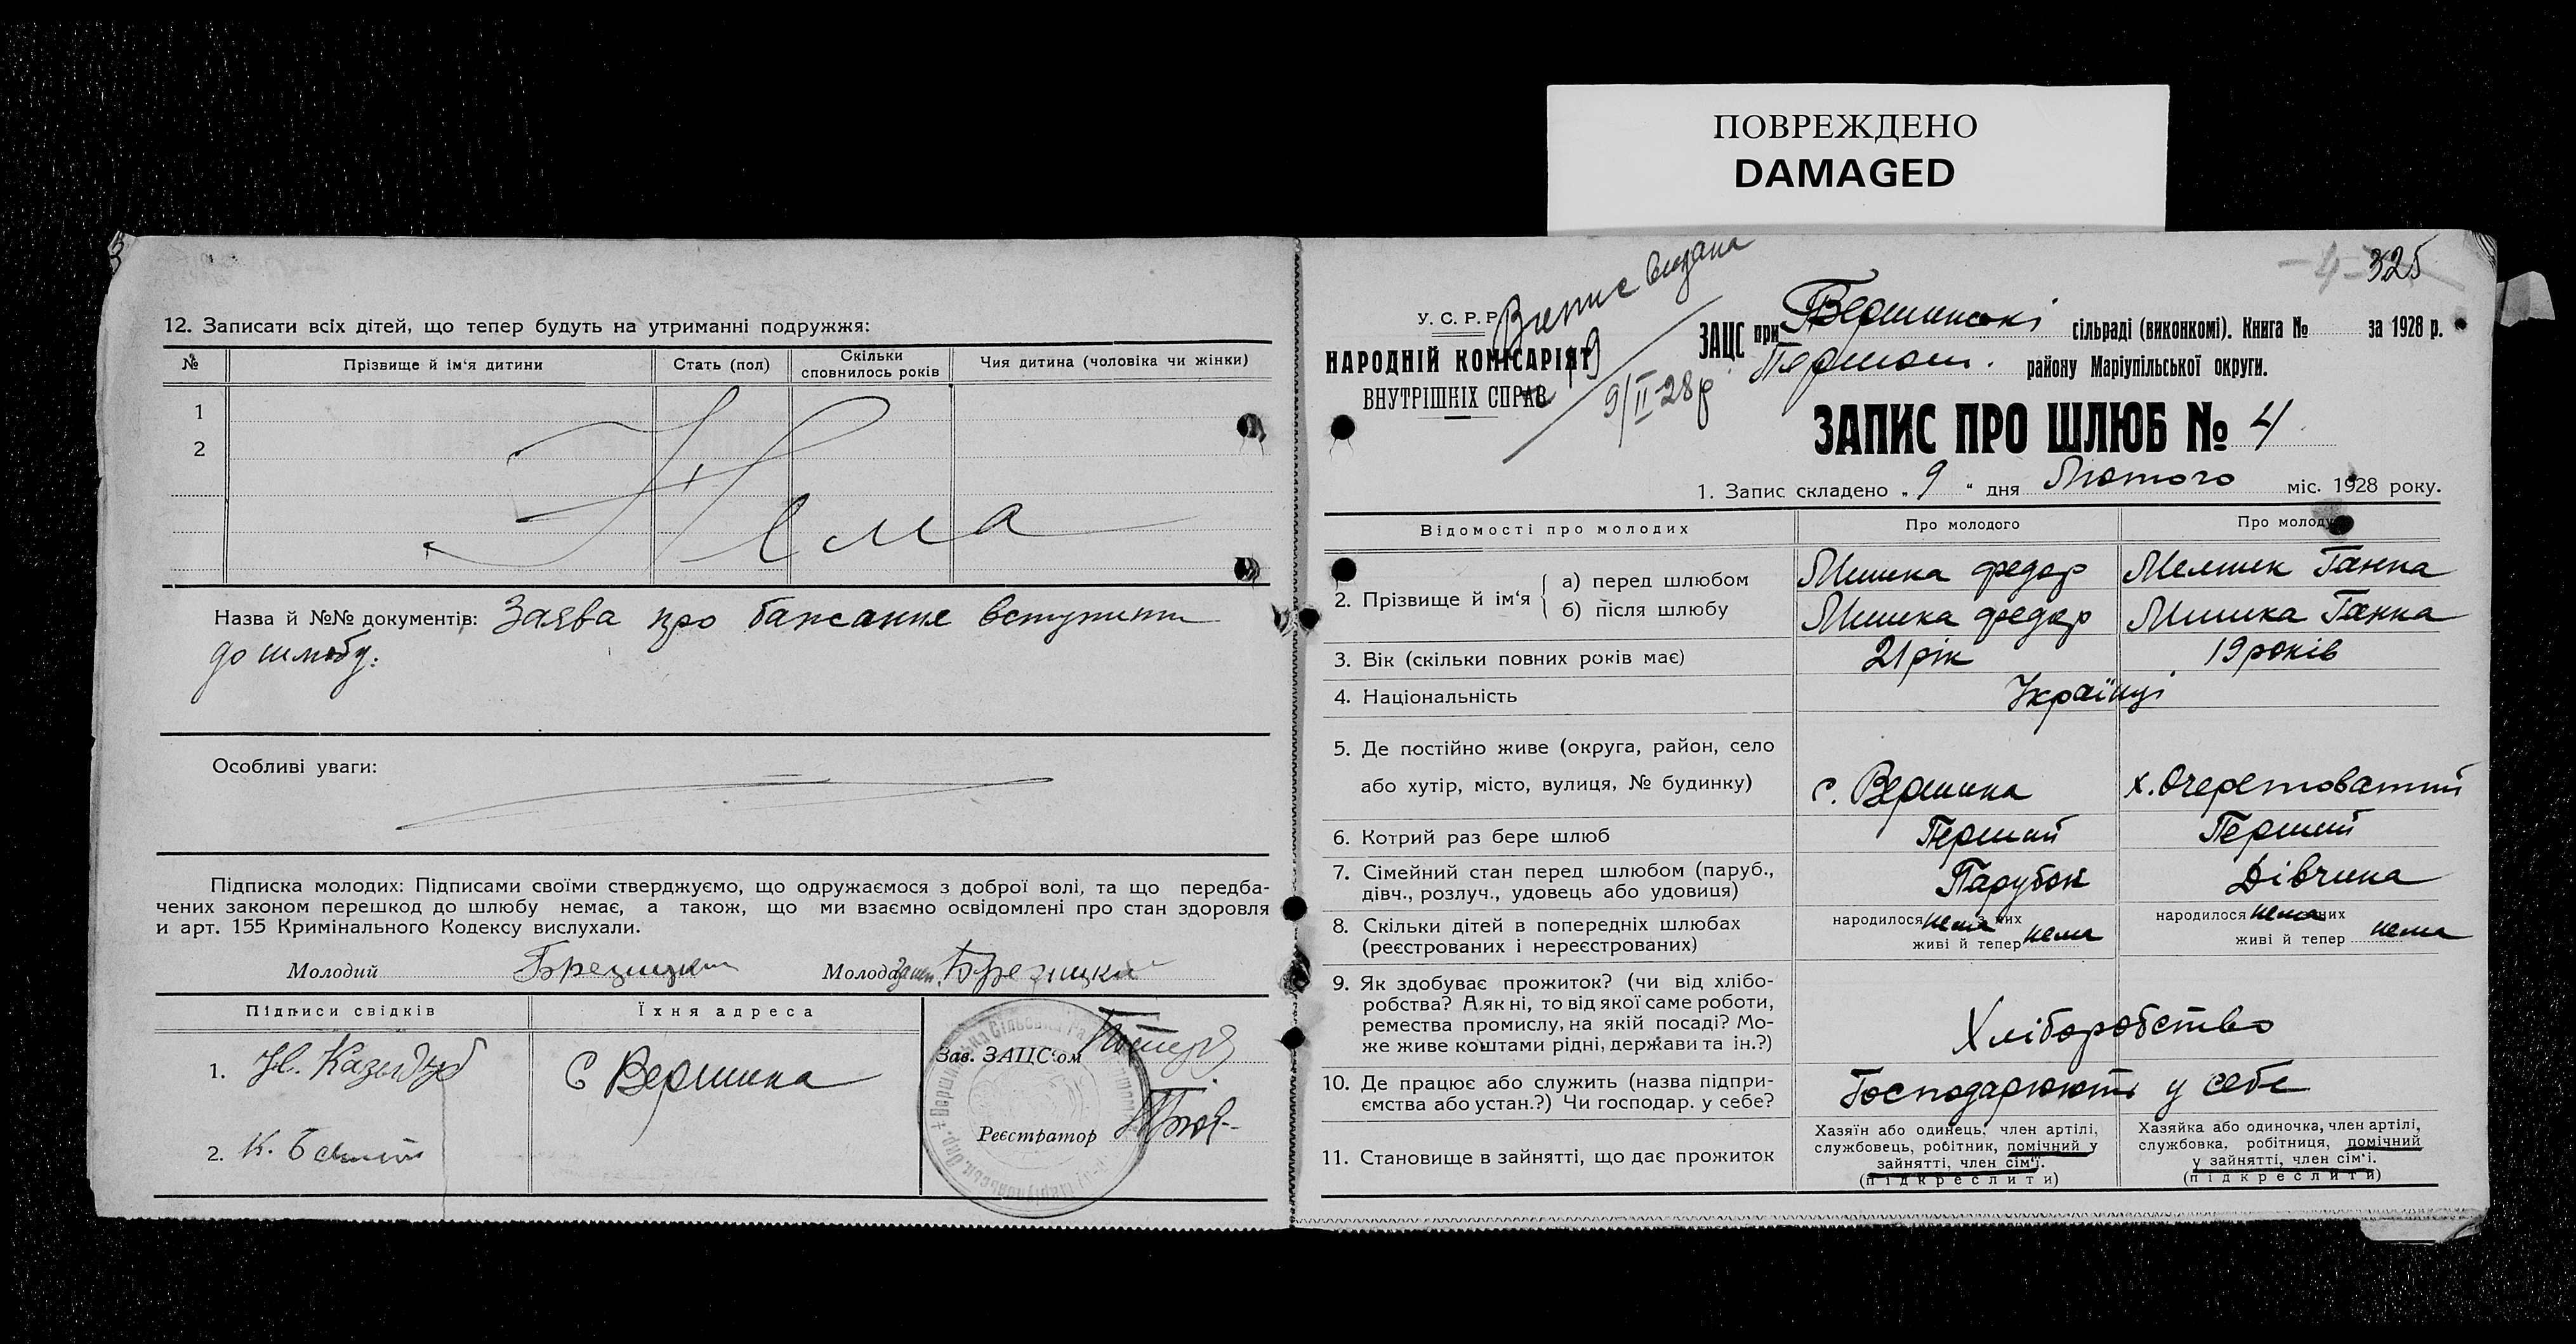 ПОВРЕЖДЕНО
DAMAGED
12. Записати всіх дітей, що тепер будуть на утриманні подружжя:
№ Прізвище й ім'я дитини Стать (пол) Скільки сповнилось років Чия дитина (чоловіка чи жінки)
1
2
Нема
Назва й №№ документів: Заява про бажання вступити
до шлюбу.
Особливі уваги:
Підписка молодих: Підписами своїми стверджуємо, що одружаємося з доброї волі, та що передба-
чених законом перешкод до шлюбу немає, а також, що ми взаємно освідомлені про стан здоровля
и арт. 155 Кримінального Кодексу вислухали.
Молодий Молода
Підписи свідків Їхня адреса
1. с Вершина
2. К.
Зав. ЗАЦС'ом
Реєстратор
325
-4-
Випис видана
19
9/II-28р
У. С. Р. Р.
НАРОДНІЙ КОМІСАРІЯТ
ВНУТРІШНІХ СПРАВ
ЗАЦС при Вершинські сільраді (виконкомі). Книга № за 1928 р.
району Маріупільської округи.
ЗАПИС ПРО ШЛЮБ № 4
1. Запис складено „ 9 “ дня Лютого міс. 1928 року.
Відомості про молодих Про молодого Про молоду
2. Прізвище й ім'я
а) перед шлюбом Мишка Федор Мелник Ганна
б) після шлюбу Мишка Федор Мишка Ганна
3. Вік (скільки повних років має) 21 рік 19 років
4. Національність Українці
5. Де постійно живе (округа, район, село
або хутір, місто, вулиця, № будинку) с. Вершина х. Очеретоватий
6. Котрий раз бере шлюб Перший Перший
7. Сімейний стан перед шлюбом (паруб.,
дівч., розлуч., удовець або удовиця) Парубок Дівчина
8. Скільки дітей в попередніх шлюбах народилося нема з них народилося нема них
(реєстрованих і нереєстрованих) живі й тепер нема живі й тепер нема
9. Як здобуває прожиток? (чи від хлібо-
робства? А як ні, то від якої саме роботи,
ремества промислу, на якій посаді? Мо-
же живе коштами рідні, держави та ін.?) Хліборобство
10. Де працює або служить (назва підпри-
ємства або устан.?) Чи господар. у себе? Господарюють у себе
11. Становище в зайнятті, що дає прожиток
Хазяїн або одинець, член артілі,
службовець, робітник, помічний у
зайнятті, член сім'ї.
(підкреслити)
Хазяйка або одиночка, член артілі,
службовка, робітниця, помічний
у зайнятті, член сім'ї.
(підкреслити)